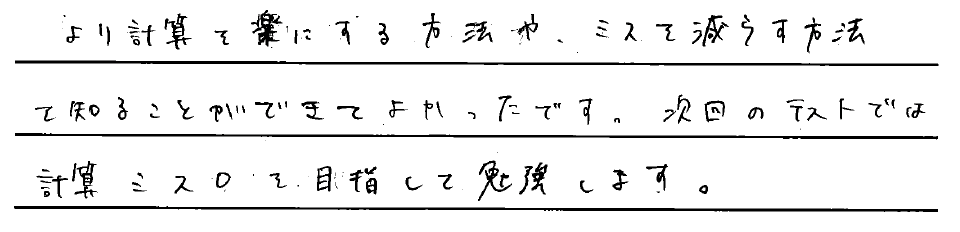 より計算を楽にする方法や、ミスを減らす方法
を知ることができてよかったです。次回のテストでは
計算ミス0を目指して勉強します。